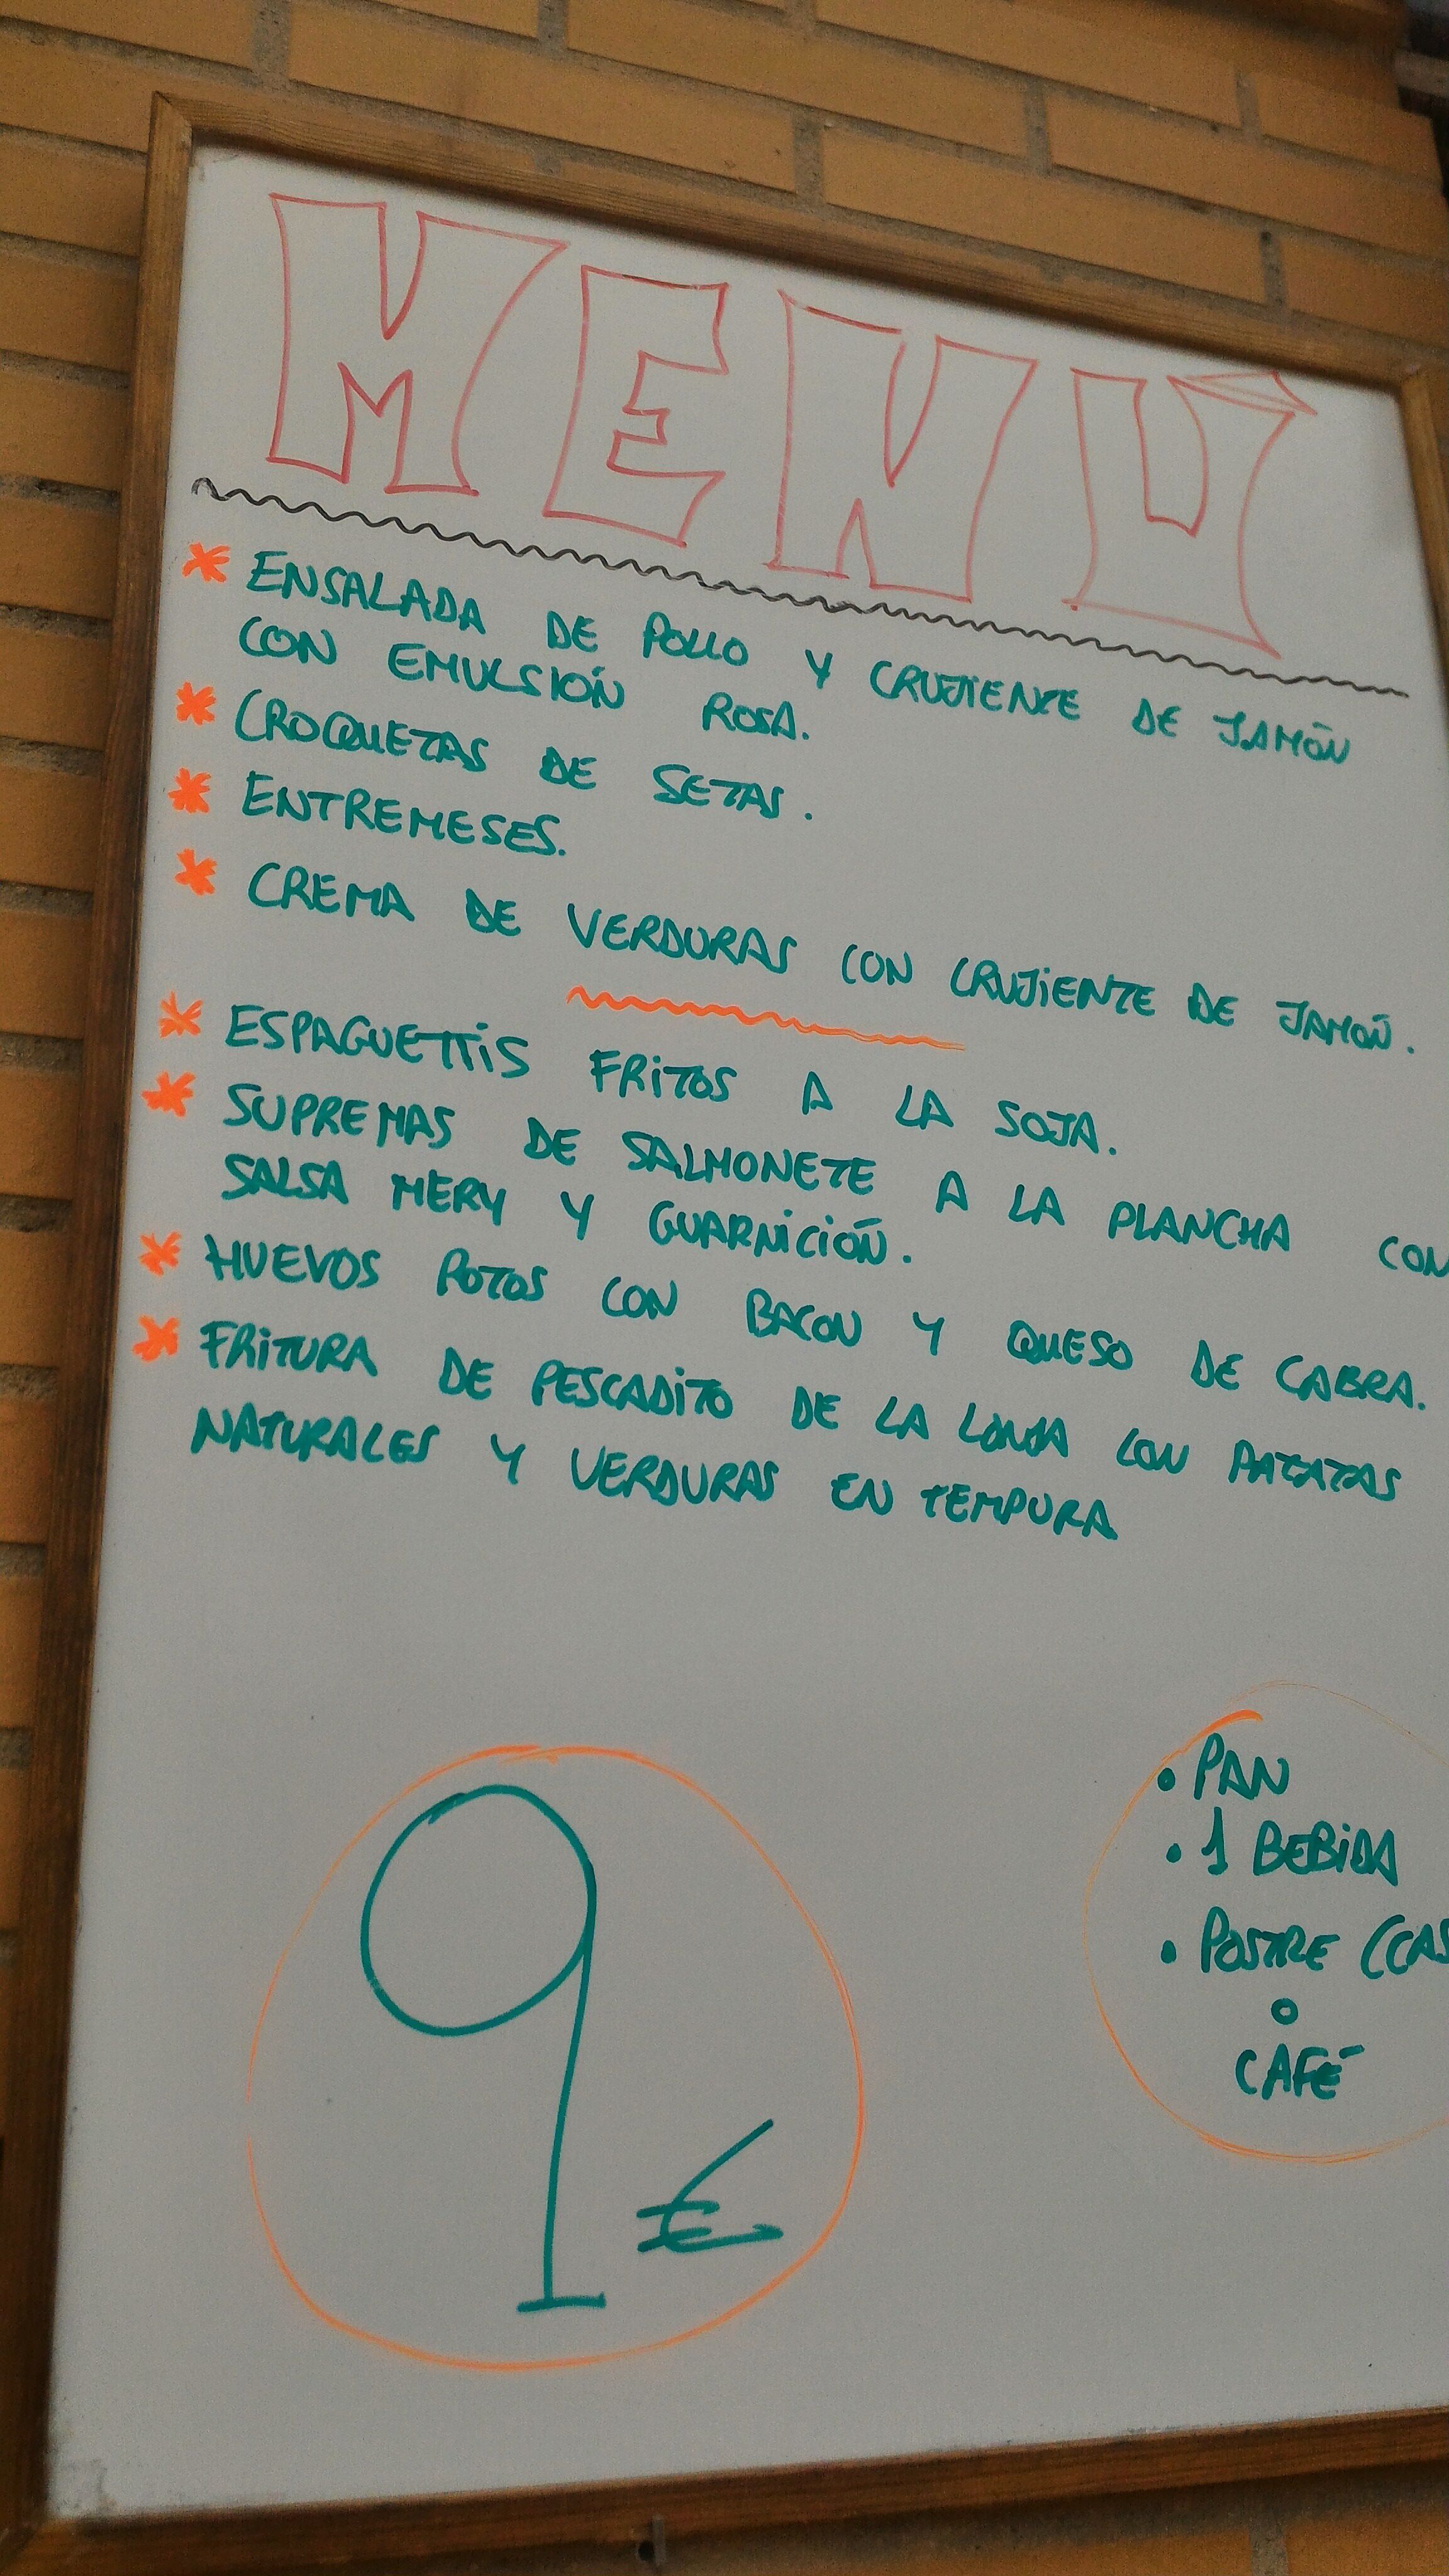 MENÚ
* ENSALADA DE POLLO Y CRUJIENTE DE JAMÓN
CON EMULSIÓN ROSA.
* CROQUETAS DE SETAS.
* ENTREMESES.
* CREMA DE VERDURAS CON CRUJIENTE DE JAMÓN.
* ESPAGUETTIS FRITOS A LA SOJA.
* SUPREMAS DE SALMONETE A LA PLANCHA CON
SALSA MERY Y GUARNICIÓN.
* HUEVOS ROTOS CON BACON Y QUESO DE CABRA.
* FRITURA DE PESCADITO DE LA LONJA CON PATATAS
NATURALES Y VERDURAS EN TEMPURA
9 €
• PAN
• 1 BEBIDA
• POSTRE (CAS
O
CAFÉ